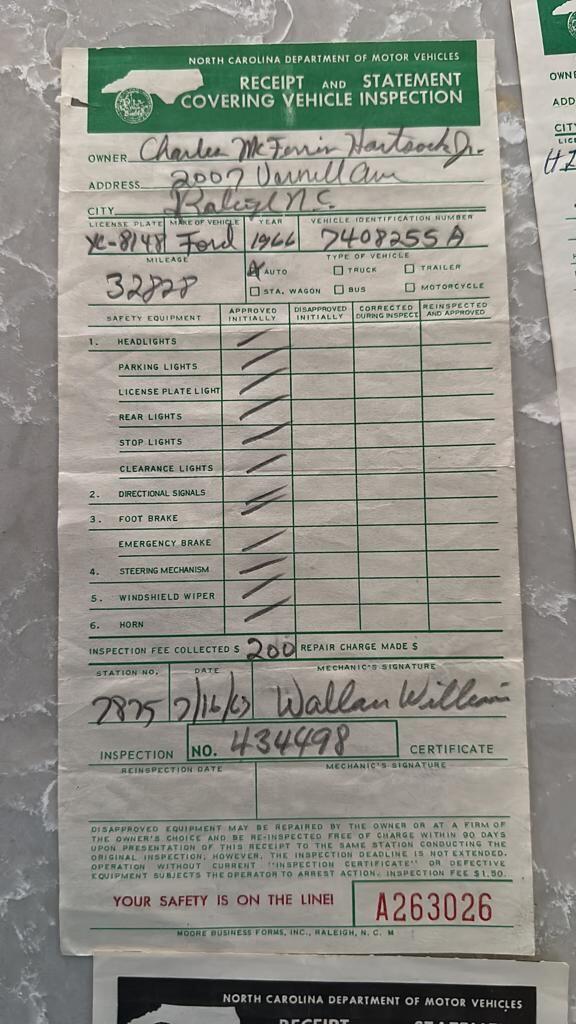 NORTH CAROLINA DEPARTMENT OF MOTOR VEHICLES
RECEIPT AND STATEMENT
COVERING VEHICLE INSPECTION
OWNER Charles McFerrin Hartsock Jr.
ADDRESS 2007 Ave
CITY Raleigh N.C.
LICENSE PLATE MAKE OF VEHICLE YEAR VEHICLE IDENTIFICATION NUMBER
-8148 Ford 1966 7408255A
MILEAGE TYPE OF VEHICLE
32828
AUTO TRUCK TRAILER
STA. WAGON BUS MOTORCYCLE
SAFETY EQUIPMENT APPROVED INITIALLY DISAPPROVED INITIALLY CORRECTED DURING INSPECT. REINSPECTED AND APPROVED
1. HEADLIGHTS
PARKING LIGHTS
LICENSE PLATE LIGHT
REAR LIGHTS
STOP LIGHTS
CLEARANCE LIGHTS
2. DIRECTIONAL SIGNALS
3. FOOT BRAKE
EMERGENCY BRAKE
4. STEERING MECHANISM
5. WINDSHIELD WIPER
6. HORN
INSPECTION FEE COLLECTED $ 200 REPAIR CHARGE MADE $
STATION NO. DATE MECHANIC'S SIGNATURE
7875
INSPECTION NO. 434498 CERTIFICATE
REINSPECTION DATE MECHANIC'S SIGNATURE
DISAPPROVED EQUIPMENT MAY BE REPAIRED BY THE OWNER OR AT A FIRM OF
THE OWNER'S CHOICE AND BE RE-INSPECTED FREE OF CHARGE WITHIN 90 DAYS
UPON PRESENTATION OF THIS RECEIPT TO THE SAME STATION CONDUCTING THE
ORIGINAL INSPECTION, HOWEVER, THE INSPECTION DEADLINE IS NOT EXTENDED.
OPERATION WITHOUT CURRENT "INSPECTION CERTIFICATE" OR DEFECTIVE
EQUIPMENT SUBJECTS THE OPERATOR TO ARREST ACTION. INSPECTION FEE $1.50.
YOUR SAFETY IS ON THE LINE!
A263026
MOORE BUSINESS FORMS, INC., RALEIGH, N. C. M
NORTH CAROLINA DEPARTMENT OF MOTOR VEHICLES
OWNE
ADD
CITY